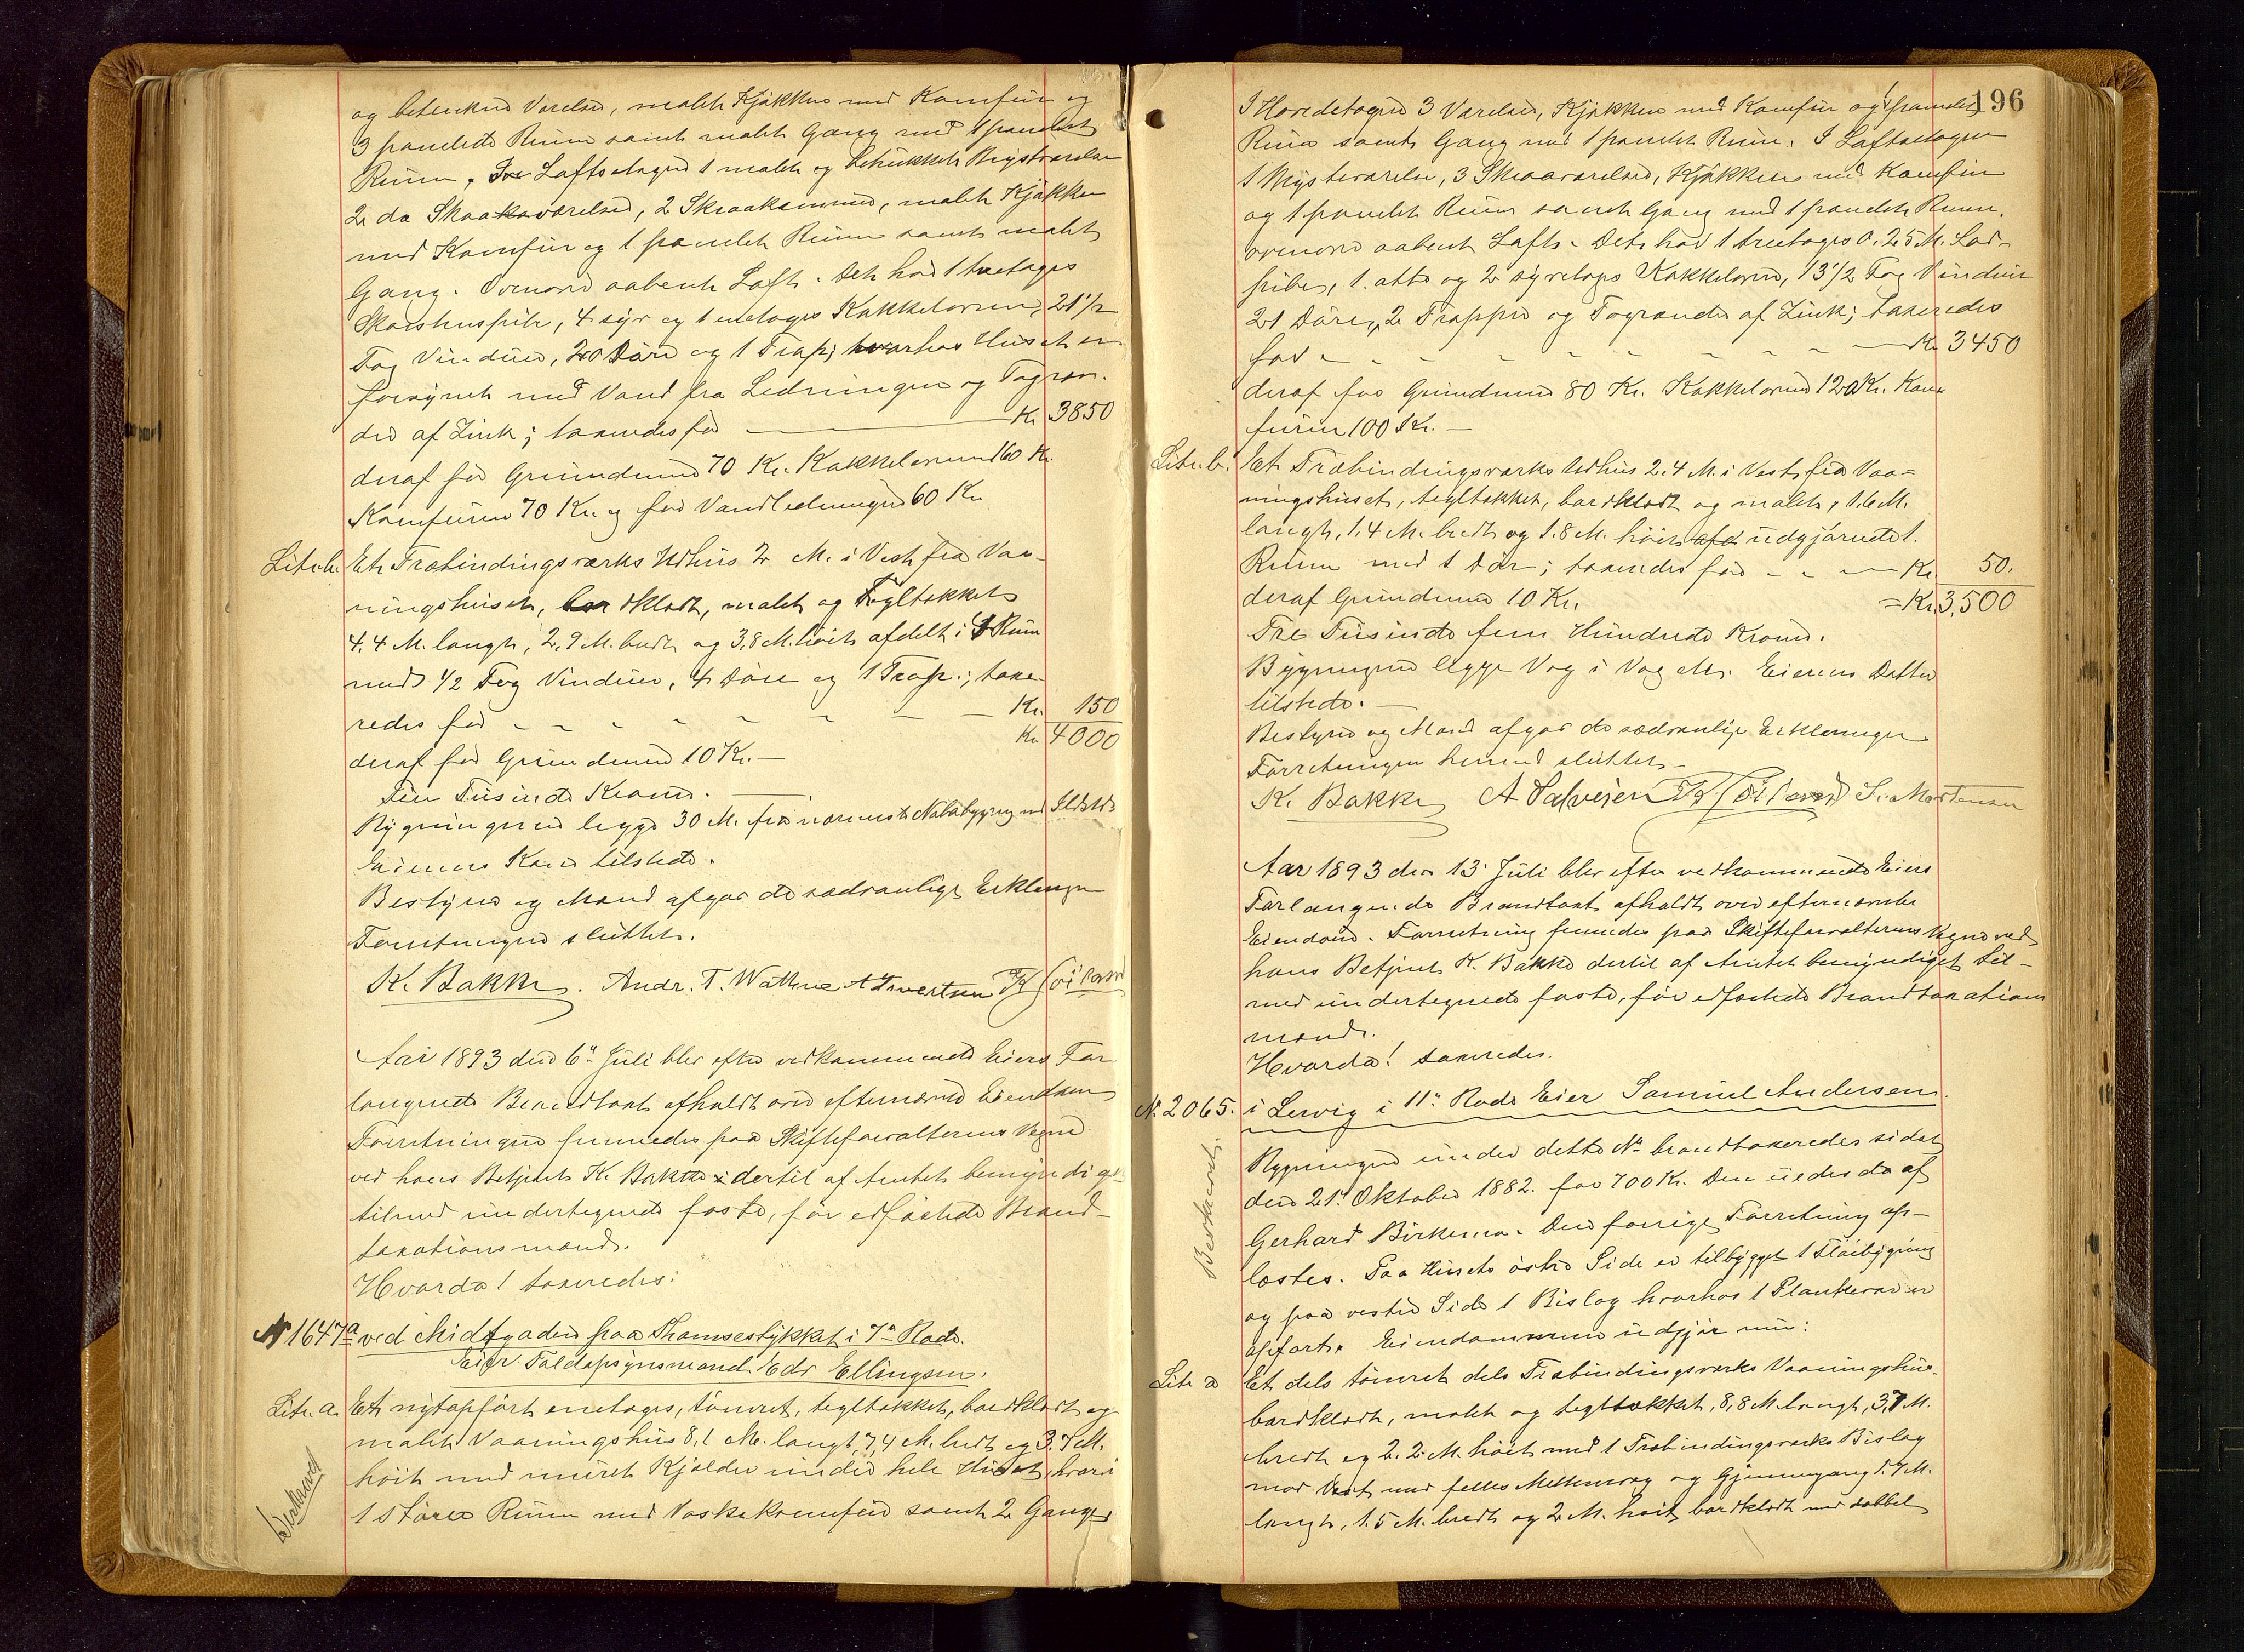 og betrukne Værelser, malet Kjøkken med Komfur og
3 panelede Rum samt malet Gang med 1 panelet
Rum. I Loftsetagen 1 malet og betrukket Kvistværelse
2 do Skraaværelser, 2 Skraakammere, malet Kjøkken
med Komfur og 1 panelet Rum samt malet
Gang. Ovenover aabent Loft. Det har 1 treetages
Skorstenspibe, 4 syv og 1 enetages Kakkelovne, 21 1/2
Fag Vinduer, 20 Døre og 1 Trap; hvorhos Huset er
forsynet med Vand fra Ledningen og Tagren-
der af Zink; taxeredes for Kr 3850
deraf for Grundmur 70 Kr. Kakkelovne 160 Kr.
Komfurer 70 Kr. og for Vandledningen 60 Kr
Litr. b. Et Træbindingsværks Udhus 2 M. i Vest fra Vaa-
ningshuset, bordklædt, malet og Tegltækket
4,4 M. langt, 2,9 M. bredt og 3,8 M. høit afdelt i 4 Rum
med 1/2 Fag Vinduer, 4 Døre og 1 Trap.; taxe-
redes for - - - - - - Kr. 150
Kr 4000
deraf for Grundmur 10 Kr. —
Fire Tusinde Kroner.
Bygningerne ligge 30 M. fra nærmeste Nabobygning med Ildsted
Eierens Kone tilstede.
Bestyrer og Mænd afgav de sædvanlige Erklæringer
Forretningen sluttet.
K. Bakke. Andr. T. Wathne A Sivertsen
Aar 1893 den 6te Juli blev efter vedkommende Eiers For-
langende Brandtaxt afholdt over efternævnte Eiendom
Forretningen fremmedes paa Skifteforvalterens Vegne
ved hans Betjent K. Bakke dertil af Amtet bemyndiget
tilmed undertegnede faste, før edfæstede Brand-
taxationsmænd.
Hvorda! taxeredes:
No 1647a ved Midtgaden paa Thomsestykket i 7de Rode.
Eier Toldopsynsmand Edv Ellingsen.
Litr. a. Et nyopført enetages, tømret, tegltækket, bordklædt og
malet Vaaningshus 8,1 M. langt, 7,4 M. bredt og 3,7 M.
høit med muret Kjælder under hele Huset, hvori
1 større Rum med Vaskekomfur samt 2 Gange
Beskrevet
196
I Hovedetagen 3 Værelser, Kjøkken med Komfur og 1 panelet
Rum samt Gang med 1 panelet Rum. I Loftsetagen
1 Kvistværelse, 3 Skraaværelser, Kjøkken med Komfur
og 1 panelet Rum samt Gang med 1 panelet Rum.
ovenover aabent Loft. Det har 1 treetages 0,25 M. Lod-
pibe, 1 otte og 2 syvetages Kakkelovne, 13 1/2 Fag Vinduer
21 Døre, 2 Trapper og Tagrender af Zink; taxeredes
for - - - - - - - - Kr 3450
deraf for Grundmur 80 Kr. Kakkelovne 120 Kr. Kom-
furer 100 Kr. —
Litr. b. Et Træbindingsværks Udhus 2,4 M. i Vest fra Vaa-
ningshuset, tegltækket, bordklædt og malet, 1,6 M.
langt, 1,4 M. bredt og 1,8 M. høit udgjørende 1.
Rum med 1 Dør; taxeredes for - - - Kr. 50.
deraf Grundmur 10 Kr. = Kr. 3,500
Tre Tusinde fem Hundrede Kroner.
Bygningerne ligge Væg i Væg etc. Eierens Datter
tilstede. —
Bestyrer og Mænd afgav de sædvanlige Erklæringer
Forretningen hermed sluttet. —
K. Bakke A Salvesen S. Mortensen
Aar 1893 den 13. Juli blev efter vedkommende Eiers
Forlangende Brandtaxt afholdt over efternævnte
Eiendom. Forretning fremmedes paa Skifteforvalterens Vegne ved
hans Betjent K. Bakke dertil af Amtet bemyndiget til-
med undertegnede faste, før edfæstede Brandtaxations
mænd.
Hvorda! taxeredes.
No. 2065. i Lervig i 11te Rode Eier Samuel Andersen.
Bygningen under dette No brandtaxeredes sidst
den 21de Oktober 1882 for 700 Kr. Den eiedes da af
Gerhard Birkemo. Den forrige Forretning op-
læstes. Paa Husets østre Side er tilbygget 1 Fløibygning
og paa vestre Side 1 Bislag hvorhos 1 Plankeværk er
opført. Eiendommen udgjør nu:
Litr a Et dels tømret dels Træbindingsværks Vaaningshus.
bordklædt, malet og tegltækket, 8,8 M. langt, 3,7 M.
bredt og 2,2 M. høit med 1 Træbindingsværks Bislag
mod Vest med fælles Mellemvæg og Gjennemgang 1.7 M.
langt, 1.5 M. bredt og 2 M. høit bordklædt med dobbel
Beskrevet.